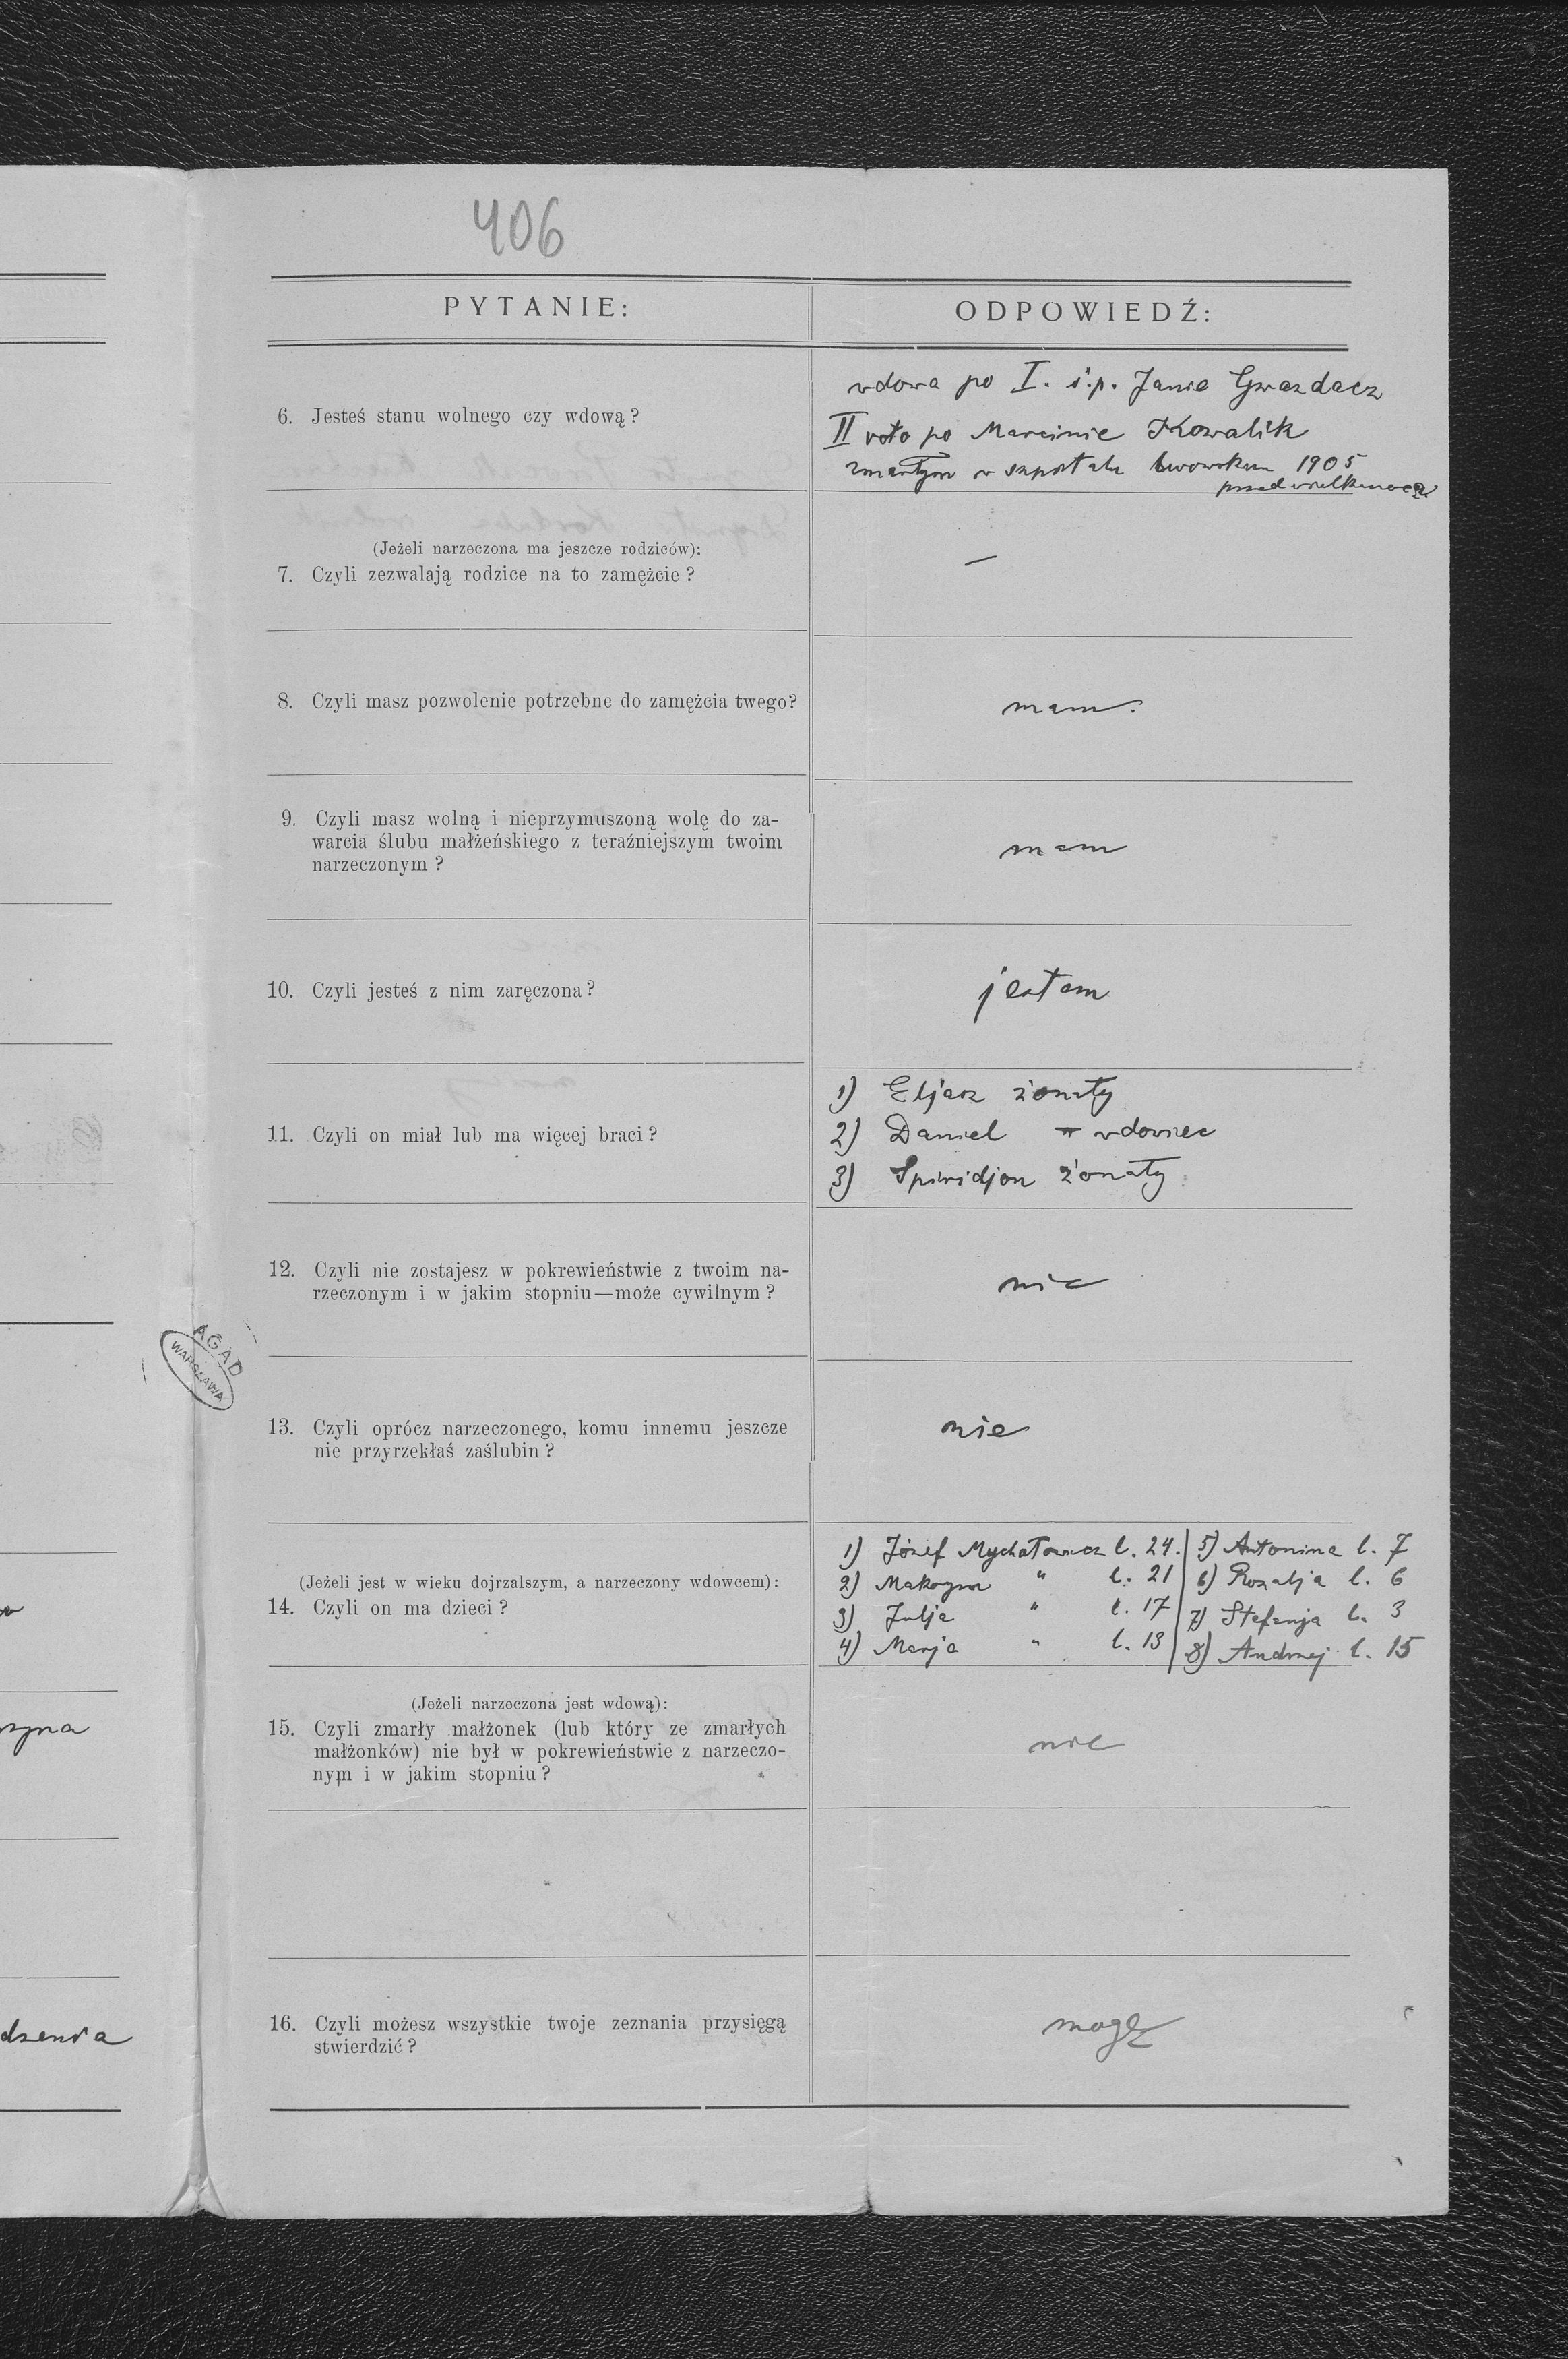 406
PYTANIE:
ODPOWIEDŹ:
6. Jesteś stanu wolnego czy wdową?
wdowa po I. ś.p. Janie Gwazdacz
II voto po Marcinie Kowalik
zmarłym w szpitalu lwowskim 1905
przed wielkanocą
(Jeżeli narzeczona ma jeszcze rodziców):
7. Czyli zezwalają rodzice na to zamężcie?
—
8. Czyli masz pozwolenie potrzebne do zamężcia twego?
mam.
9. Czyli masz wolną i nieprzymuszoną wolę do za-
warcia ślubu małżeńskiego z teraźniejszym twoim
narzeczonym?
mam
10. Czyli jesteś z nim zaręczona?
jestem
11. Czyli on miał lub ma więcej braci?
1) Eljasz żonaty
2) Daniel wdowiec
3) Spiridjon żonaty
12. Czyli nie zostajesz w pokrewieństwie z twoim na-
rzeczonym i w jakim stopniu—może cywilnym?
nie
AGAD
WARSZAWA
13. Czyli oprócz narzeczonego, komu innemu jeszcze
nie przyrzekłaś zaślubin?
nie
(Jeżeli jest w wieku dojrzalszym, a narzeczony wdowcem):
14. Czyli on ma dzieci?
1) Józef Mychałowicz l. 24. 5) Antonina l. 7
2) Maksym " l. 21 6) Rozalja l. 6
3) Julja " l. 17 7) Stefanja l. 3
4) Marja " l. 13 8) Andrzej l. 15
(Jeżeli narzeczona jest wdową):
15. Czyli zmarły małżonek (lub który ze zmarłych
małżonków) nie był w pokrewieństwie z narzeczo-
nym i w jakim stopniu?
nie
16. Czyli możesz wszystkie twoje zeznania przysięgą
stwierdzić?
mogę